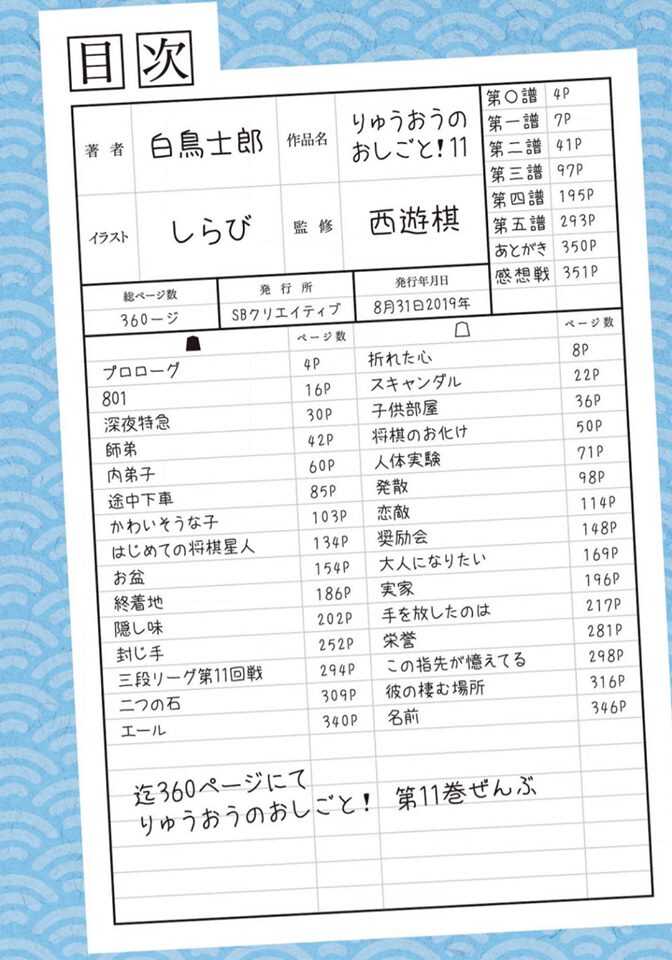 目次
著者 白鳥士郎 作品名 りゅうおうの
おしごと!11
イラスト しらび 監修 西遊棋
第〇譜 4P
第一譜 7P
第二譜 41P
第三譜 97P
第四譜 195P
第五譜 293P
あとがき 350P
感想戦 351P
総ページ数 発行所 発行年月日
360ージ SBクリエイティブ 8月31日2019年
ページ数 ページ数
プロローグ 4P 折れた心 8P
801 16P スキャンダル 22P
深夜特急 30P 子供部屋 36P
師弟 42P 将棋のお化け 50P
内弟子 60P 人体実験 71P
途中下車 85P 発散 98P
かわいそうな子 103P 恋敵 114P
はじめての将棋星人 134P 奨励会 148P
お盆 154P 大人になりたい 169P
終着地 186P 実家 196P
隠し味 202P 手を放したのは 217P
封じ手 252P 栄誉 281P
三段リーグ第11回戦 294P この指先が憶えてる 298P
二つの石 309P 彼の棲む場所 316P
エール 340P 名前 346P
迄360ページにて
りゅうおうのおしごと! 第11巻ぜんぶ